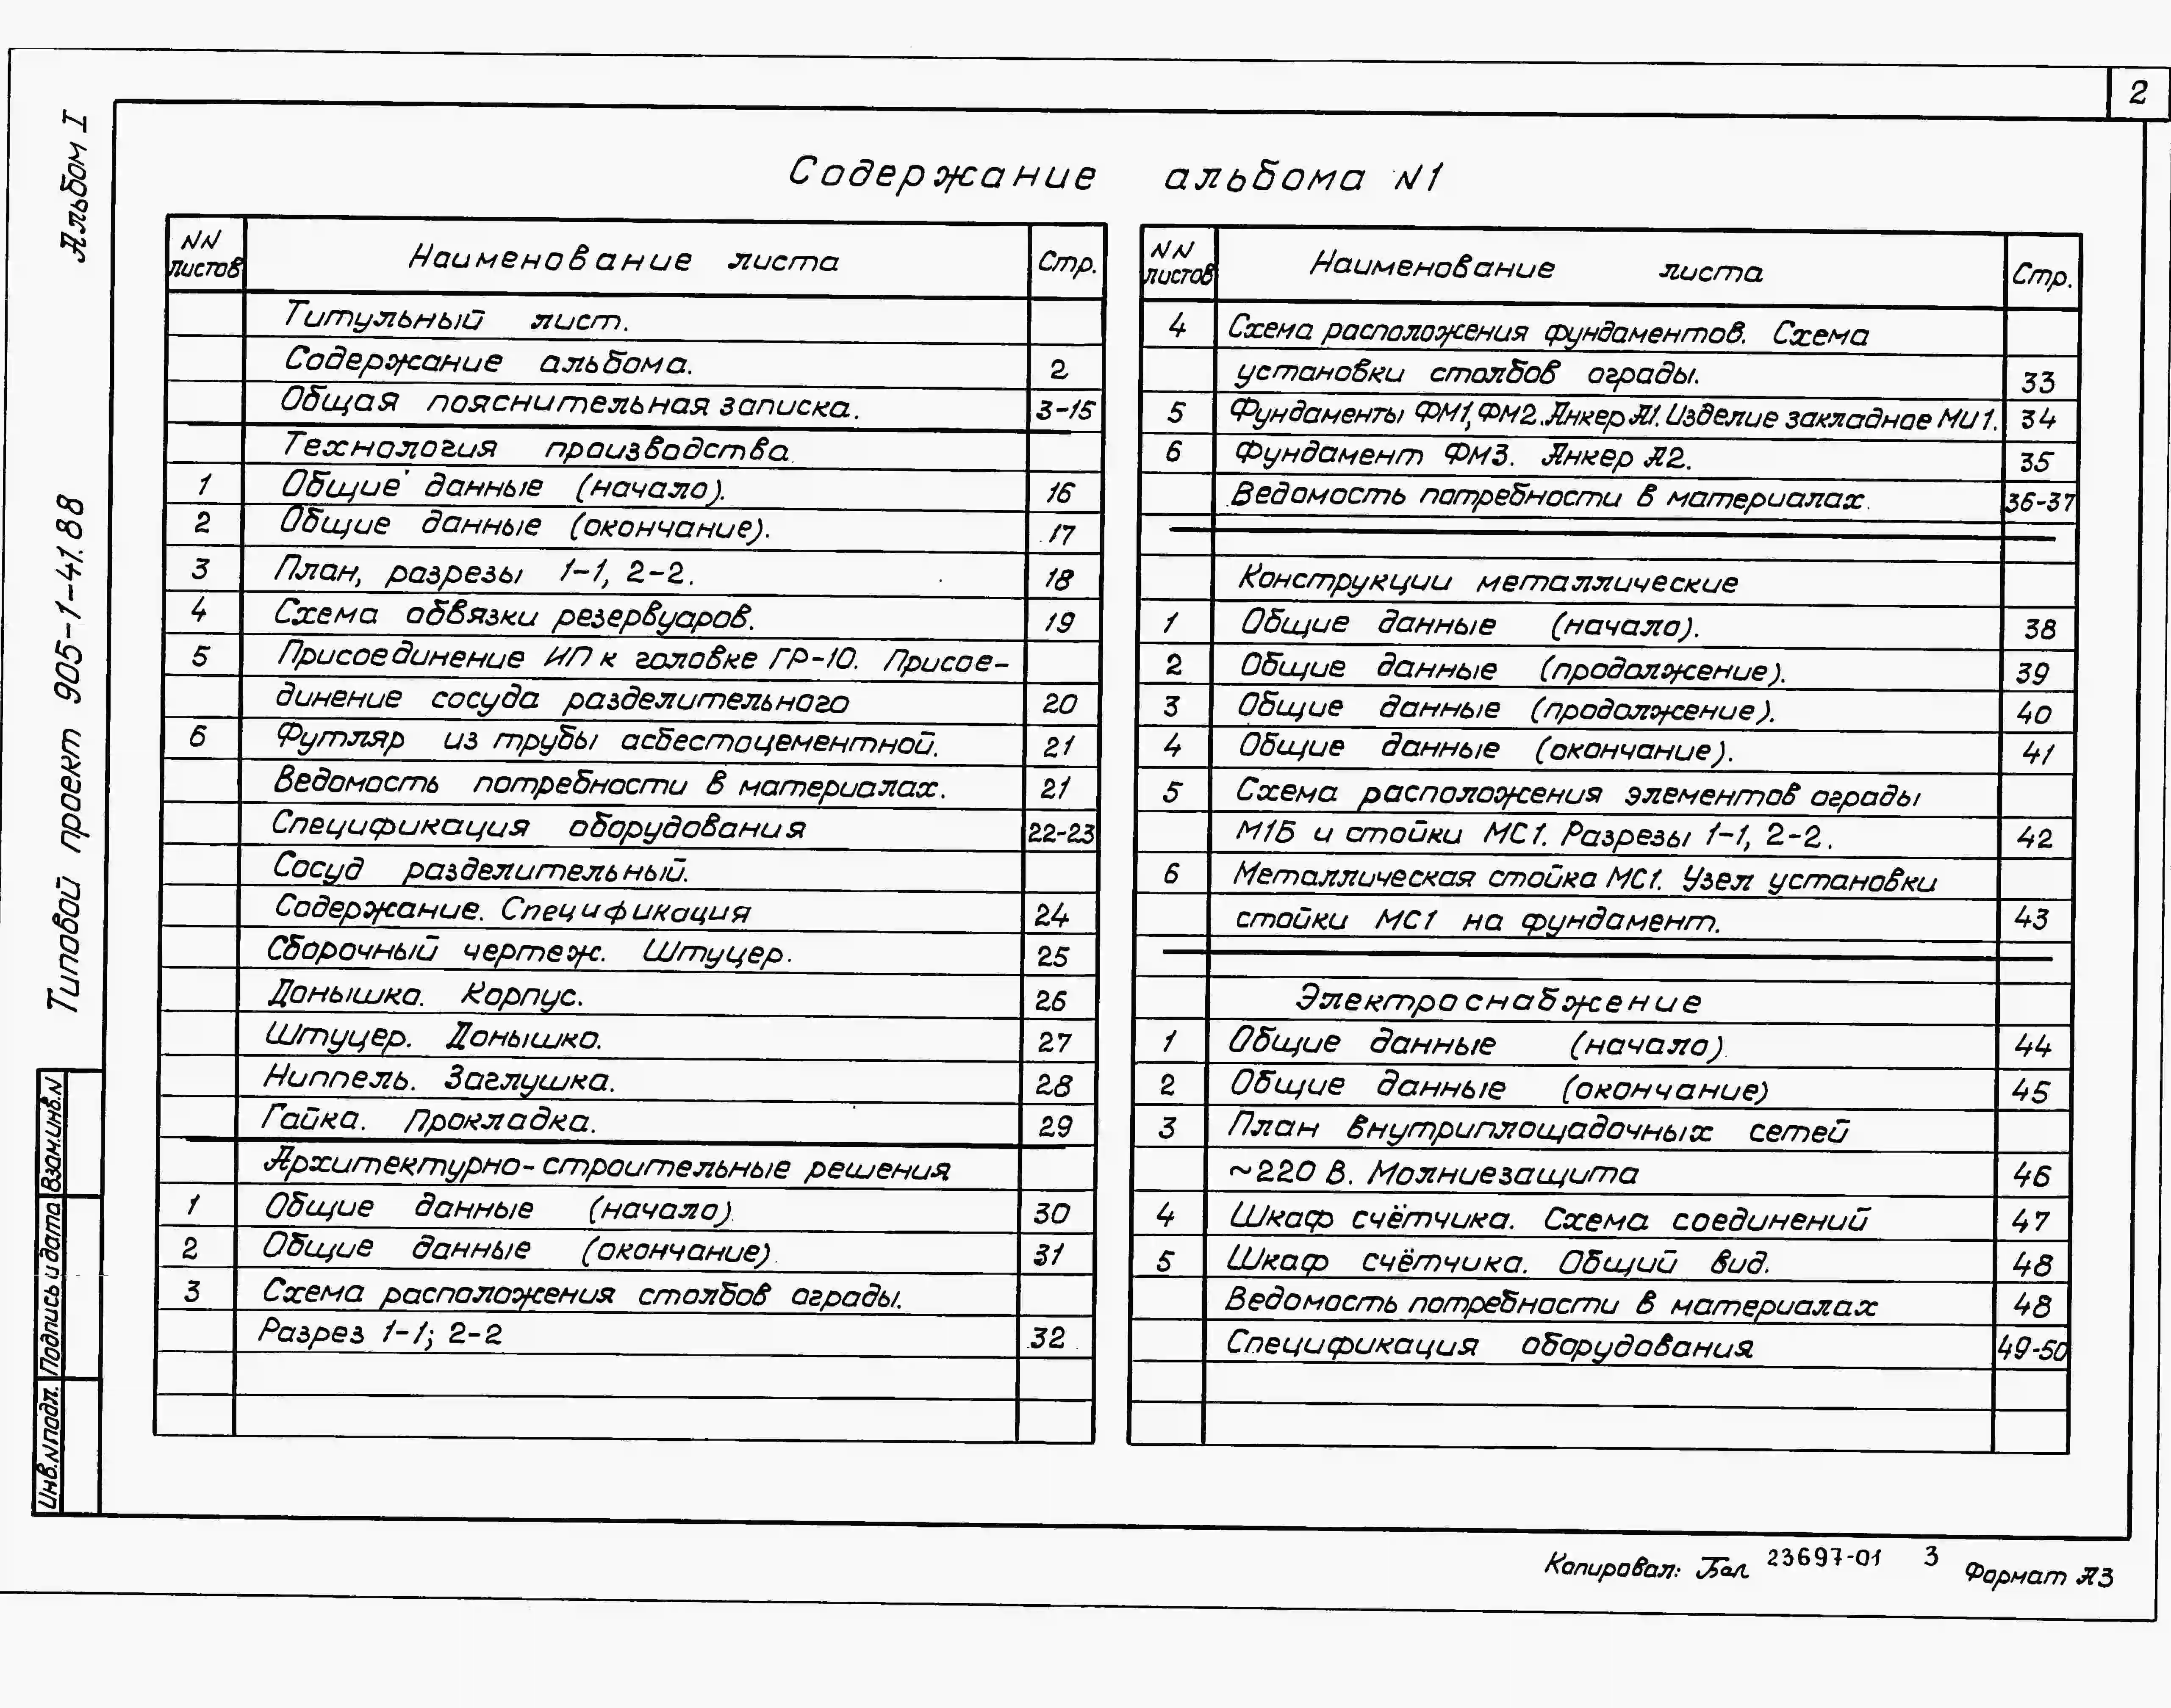 2
Альбом I
Типовой проект 905-1-41.88
Взам.инв.N
Подпись и дата
Инв.Nподл.
Содержание альбома N1
NN листов
Наименование листа
Стр.
Титульный лист.
Содержание альбома. 2
Общая пояснительная записка. 3-15
Технология производства.
1 Общие данные (начало). 16
2 Общие данные (окончание). 17
3 План, разрезы 1-1, 2-2. 18
4 Схема обвязки резервуаров. 19
5 Присоединение ИП к головке ГР-10. Присое-
динение сосуда разделительного 20
6 Футляр из трубы асбестоцементной. 21
Ведомость потребности в материалах. 21
Спецификация оборудования 22-23
Сосуд разделительный.
Содержание. Спецификация 24
Сборочный чертеж. Штуцер. 25
Донышко. Корпус. 26
Штуцер. Донышко. 27
Ниппель. Заглушка. 28
Гайка. Прокладка. 29
Архитектурно-строительные решения
1 Общие данные (начало). 30
2 Общие данные (окончание). 31
3 Схема расположения столбов ограды.
Разрез 1-1; 2-2 32
NN листов
Наименование листа
Стр.
4 Схема расположения фундаментов. Схема
установки столбов ограды. 33
5 Фундаменты ФМ1, ФМ2. Анкер А1. Изделие закладное МИ1. 34
6 Фундамент ФМ3. Анкер А2. 35
Ведомость потребности в материалах. 36-37
Конструкции металлические
1 Общие данные (начало). 38
2 Общие данные (продолжение). 39
3 Общие данные (продолжение). 40
4 Общие данные (окончание). 41
5 Схема расположения элементов ограды
М1Б и стойки МС1. Разрезы 1-1, 2-2. 42
6 Металлическая стойка МС1. Узел установки
стойки МС1 на фундамент. 43
Электроснабжение
1 Общие данные (начало) 44
2 Общие данные (окончание) 45
3 План внутриплощадочных сетей
~220 В. Молниезащита 46
4 Шкаф счётчика. Схема соединений 47
5 Шкаф счётчика. Общий вид. 48
Ведомость потребности в материалах 48
Спецификация оборудования 49-50
Копировал: Бел 23697-01 3 Формат А3